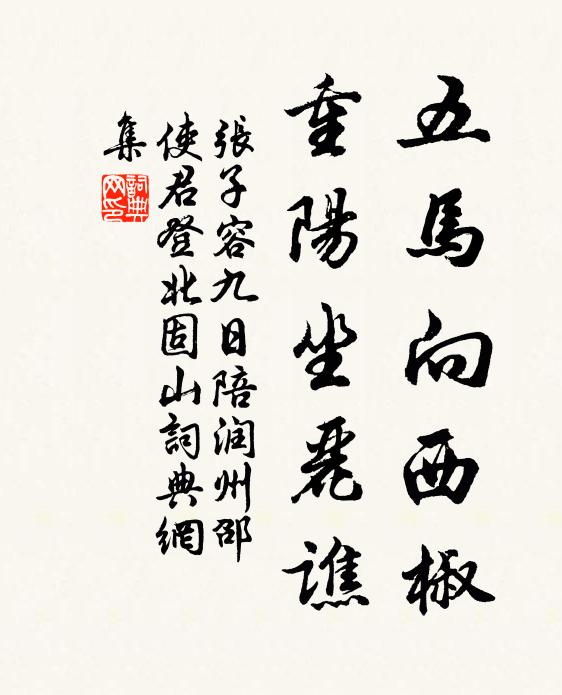 五馬向西椒
重陽坐麗譙
張子容九日陪润州邵
使君登北固山詞典網
集
詞典
网印